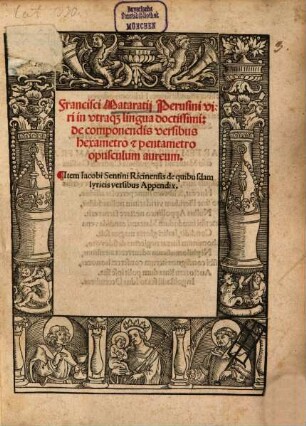 Bayerische
Staatsbibliothek
MÜNCHEN
Francisci Mataratij Perusini vi/
ri in vtraqꝫ lingua doctissimi:
de componendis versibus
hexametro ⁊ pentametro
opusculum aureum.
¶Item Iacobi Sentini Ricinensis de quibusdam
lyricis versibus Appendix.